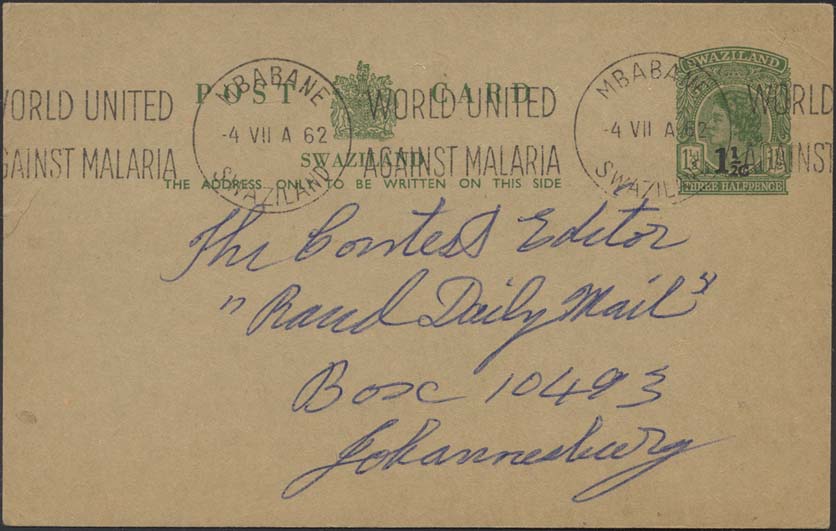 POST CARD
SWAZILAND
THE ADDRESS ONLY TO BE WRITTEN ON THIS SIDE
WORLD UNITED
AGAINST MALARIA
MBABANE
-4 VII A 62
SWAZILAND
WORLD UNITED
AGAINST MALARIA
MBABANE
-4 VII A 62
SWAZILAND
WORLD
AGAINST
SWAZILAND
1½d
1½c
THREE HALFPENCE
The Contest Editor
"Rand Daily Mail"
Box 10493
Johannesburg